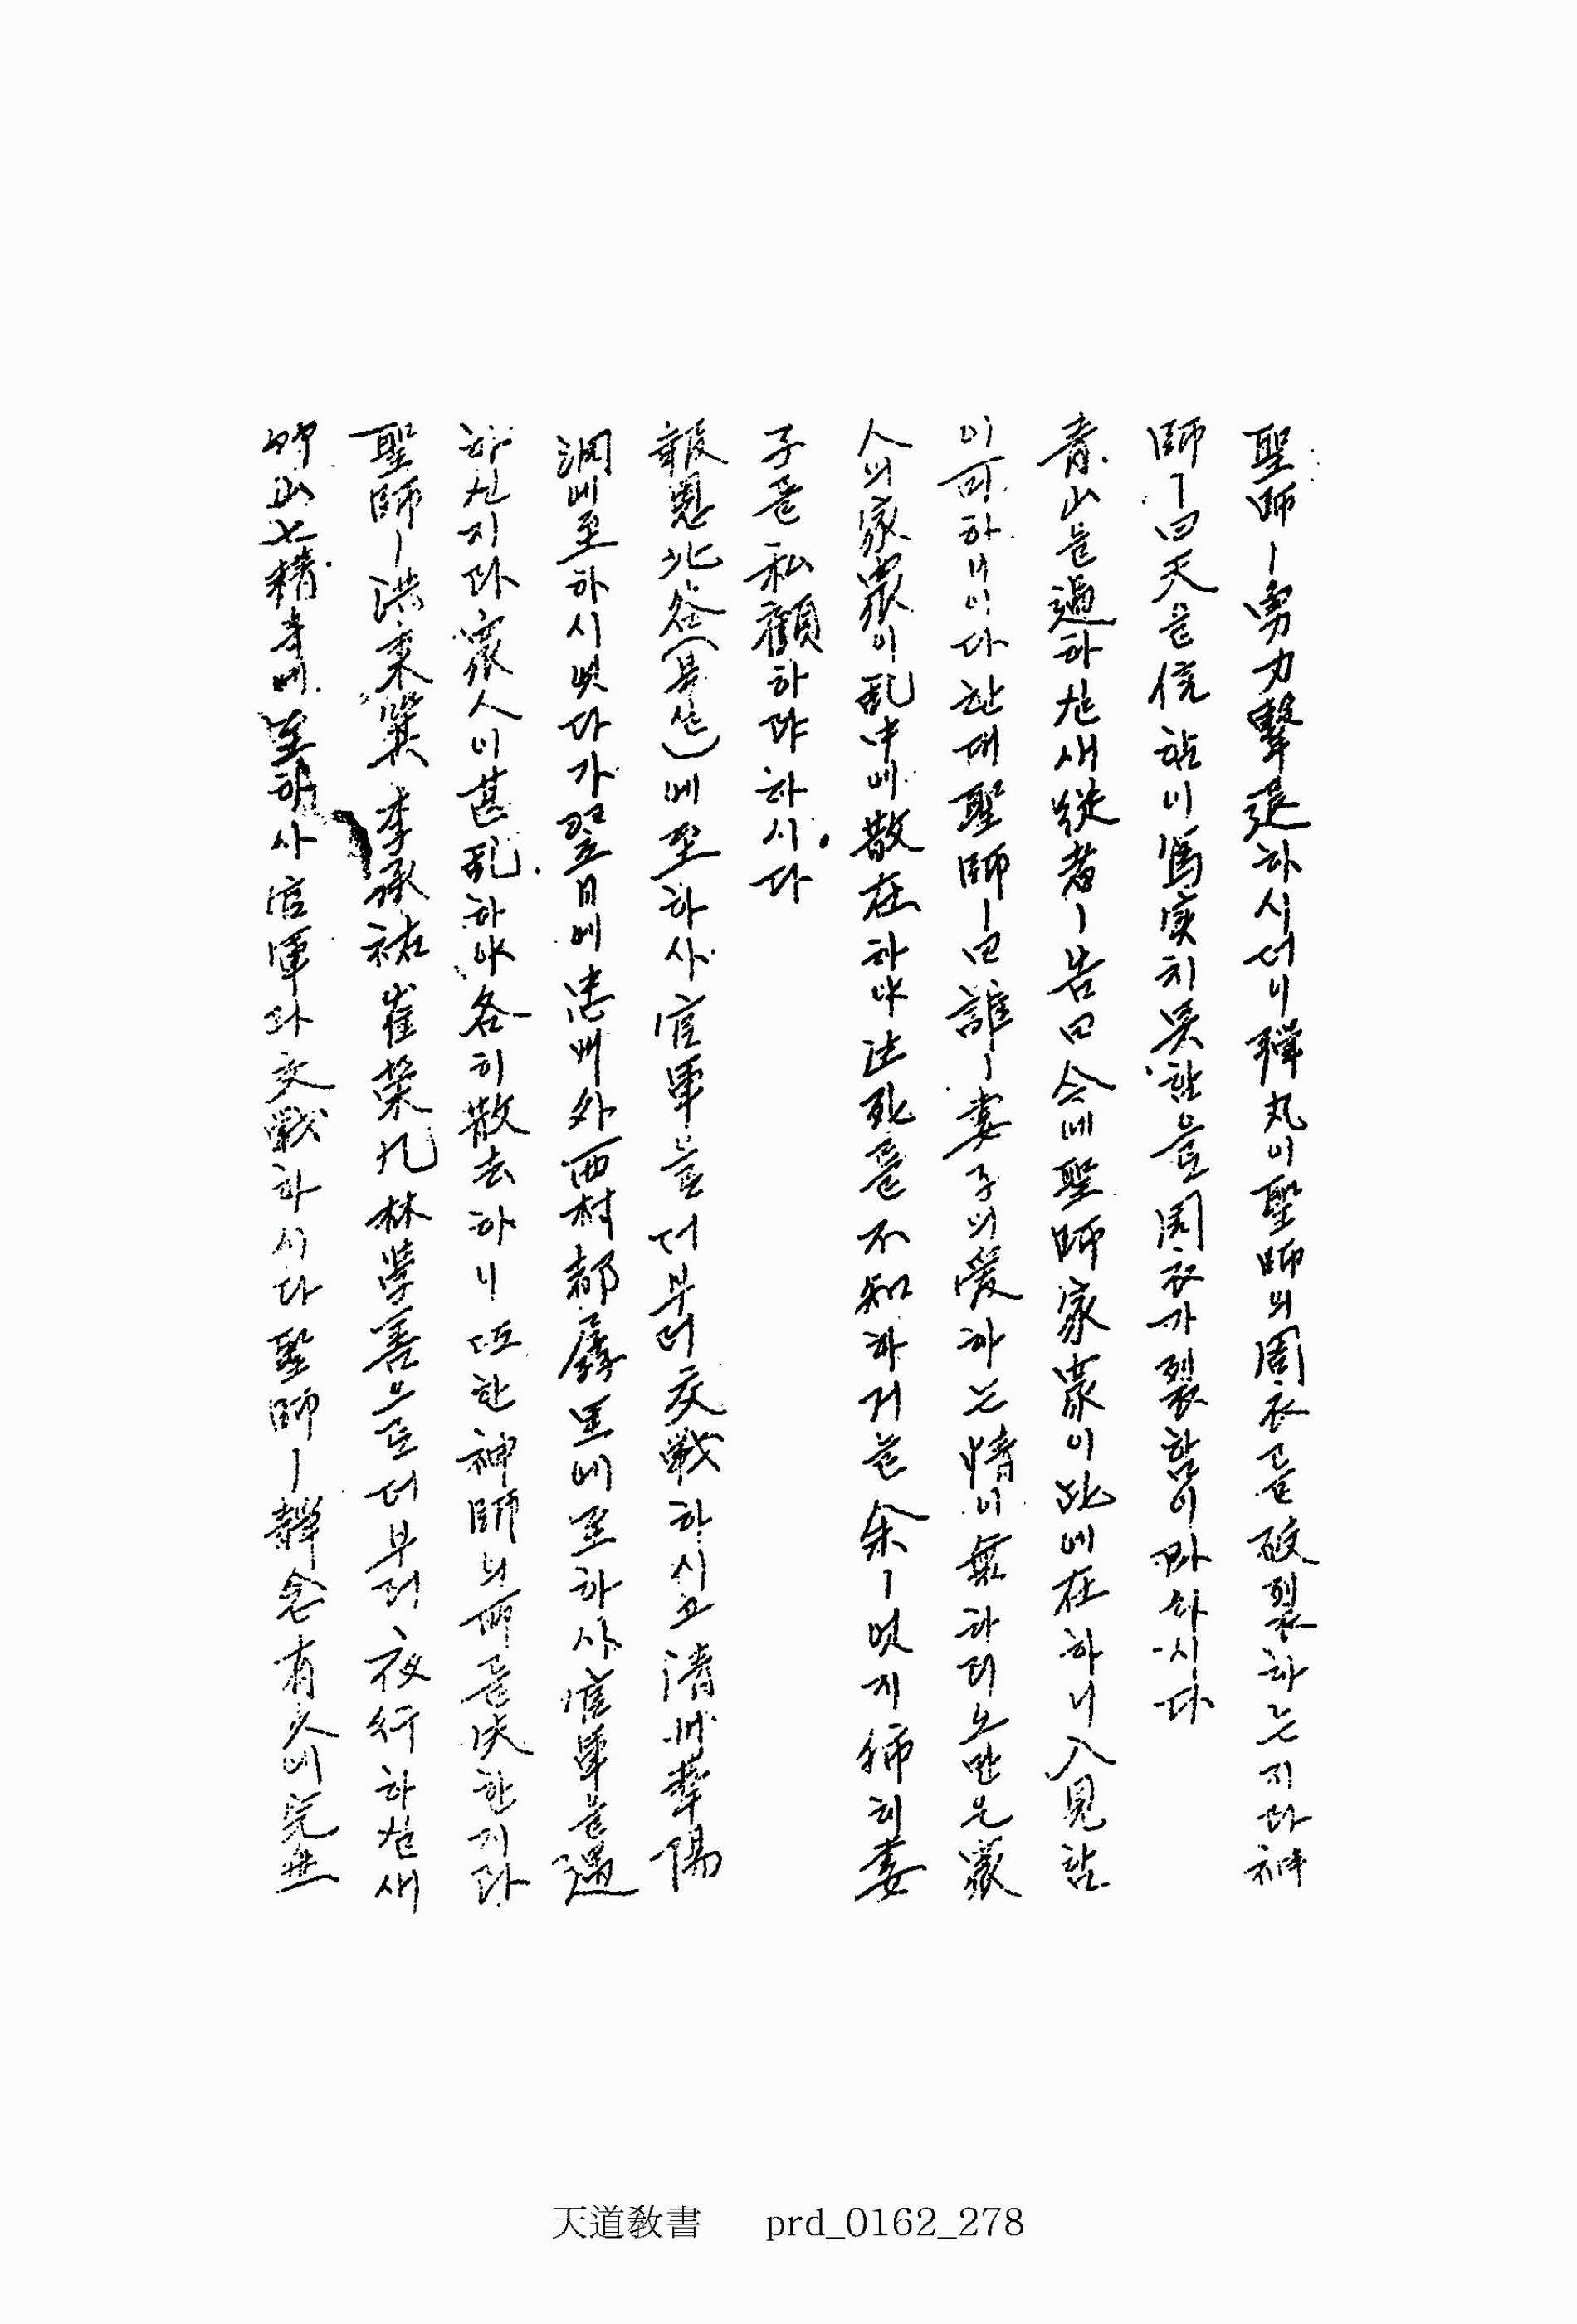 聖師ㅣ勇力擊退하시더니 彈丸이 聖師의 周衣를 破裂하는지라 神
師ㅣ曰 天을 信함이 篤実치 못함을 周衣가 裂함이라 하시다
青山을 過하실새 從者ㅣ告曰 今에 聖師家眾이 此에 在하니 入見함
이 可하니이다 한대 聖師ㅣ曰 誰ㅣ妻子의 愛하는 情이 無하리오만은 眾
人의 家眾이 乱中에 散在하야 生死를 不知하거늘 余ㅣ엇지 獨히 妻
子를 私顧하랴 하시다
報恩 北谷(북실)에 至하사 官軍을 더부러 交戰하시고 清州 華陽
洞에 至하시엿다가 翌日에 忠州 外西村 都屠里에 至하사 官軍을 遇
하신지라 眾人이 甚乱하야 各히 散去하니 또한 神師의 所를 失한지라
聖師ㅣ洪秉箕 李承祐 崔榮九 林學善으로 더부러 夜行하실새
竹山 七精寺에 至하사 官軍과 交戰하시다 聖師ㅣ靜念有久에 完然
天道敎書 prd_0162_278